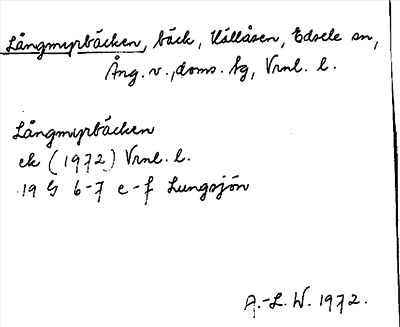 Långmyrbäcken, bäck, Hällåsen, Edsele sn,
Ång. v., doms. tg, Vrnl. l.
Långmyrbäcken
ek (1972) Vrnl. l.
19 G 6-7 e-f Lungsjön
A.-L. W. 1972.